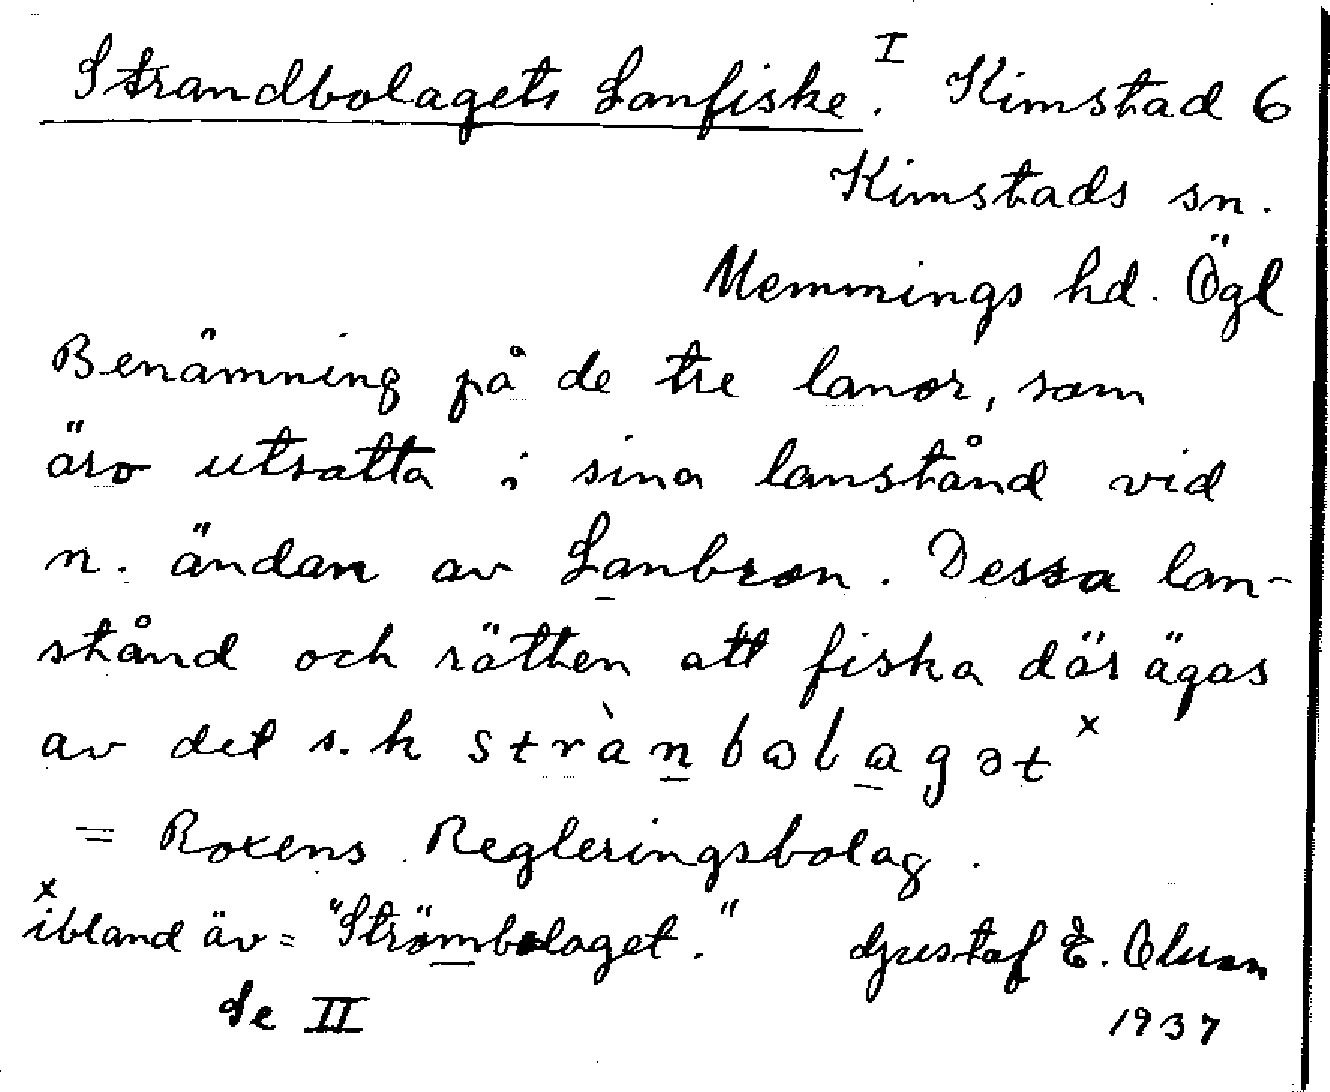 Strandbolagets Lanfiske. I Kimstad 6
Kimstads sn.
Memmings hd. Ögl
Benämning på de tre lanor, som
äro utsatta i sina lanstånd vid
n. ändan av Lanbron. Dessa lan-
stånd och rätten att fiska där ägas
av det s.k strànbolagət x
= Roxens Regleringsbolag.
x ibland äv = "Strömbolaget."
Gustaf E. Olsson
Se II
1937